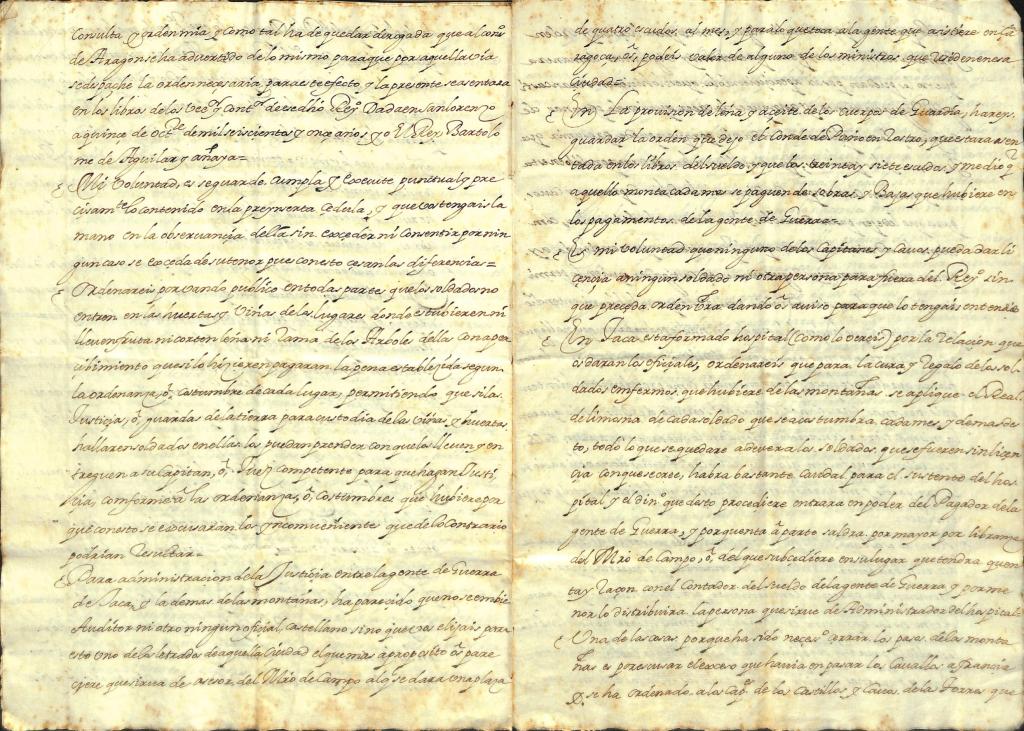 Consulta y orden mia, y como tal ha de quedar derogada que al cons.
de Aragon se ha advertido de lo mismo para que por aquella via
se despache la orden necesaria, para este efecto, y la presente se asentara
en los libros de los Veeº.y Contº. de ese dho Reyº. Dada en San Lorenzo
a quince de Octre. de mil seiscientos y once años, yo El Rey Bartolo
me de Aguilar y añaya=
Mi Voluntad, es se guarde, cumpla, y execute puntual y pre
cisamte. lo contenido en la preynserta Çedula, y que vos tengais la
mano en la observançia della sin exceder ni consentir por nin
gun caso se exceda de su tenor pues con esto cesan las diferencias=
Ordenareis por vando publico en todas partes que los soldados no
entren en las huertas, y Viñas de los lugares donde estubieren ni
lleven fruta ni corten leña ni Rama de los Arboles dellas con aper
cibimiento que si lo hicieren pagaran la pena establecida segun
la ordenanza, o, costumbre de cada lugar, permitiendo que si las
Justicias, o, guardas de la tierra para custodia de las Viñas, y huertas,
hallaren soldados en ellas los puedan prender con que los lleven, y en
treguen a su Capitan, o, Juez competente para que hagan Justi
cia, conforme a las ordenanzas, o, costumbres que hubiere por
que con esto se escusaran los ynconvenientes que de lo Contrario
podrian Resultar=
Para administracion de la Justicia entre la gente de Guerra
de Jaca, y la demas de las montañas, ha parecido que no se embie
Auditor ni otro ningun oficial, castellano sino que vos elijais para
esto Uno de los letrados de aquella Ciudad el que mas a proposito os pare
ciere que sirva de asesor del Mro de Campo al qe. se dara una plaza
de quatro escudos al mes, y para lo que toca a la gente que asistiere en Ça
ragoça, os, podeis valer de alguno de los ministros que Residen en esa
Ciudad=
En La provision de leña y açeite de los cuerpos de Guardia, hareys
guardar la orden que dejo el Conde de Paño en Rostro, que estara asen
tada en los libros del sueldo, y que los treinta y siete escudos, y medio q
aquello monta cada mes se paguen de sobras, y Bajas que hubiere en
los pagamentos de la gente de Guerra=
Es mi voluntad que ninguno de los Capitanes, y Cavos pueda dar li
cencia a ningun soldado ni otra persona para fuera del Reyº sin
que preceda orden vra dando os aviso para que lo tengais entendido
En Jaca esta formado hospital (como lo vereis) por la Relacion que
os daran los oficiales, ordenareis que para la cura, y regalo de los sol
dados enfermos, que hubiere de las montañas se aplique el Real
de limosna de cada soldado que se acostumbra cada mes, y demas de
sto, todo lo que se quedare a dever a los soldados, que se fueren sin licen
cia con que se cree, habra bastante caudal para el sustento del hos
pital, y el dinº. que desto procediere entrara en poder del Pagador de la
gente de Guerra, y por quenta a parte saldra, por mayor por libranza
del Mro de Campo, o, del que subcediere en su lugar que tendra quen
ta y raçon con el Contador del sueldo de la gente de Guerra, y por me
nor lo distribuira la persona que sirve de Administrador del hospital
Una de las cosas porque ha sido neçesº cerrar los pasos de las monta
ñas es por escusar el exceso que havia en pasar los Cavallos a Francia
y se ha ordenado a los Capes. de los Castillos, y Cavos de las Torres que